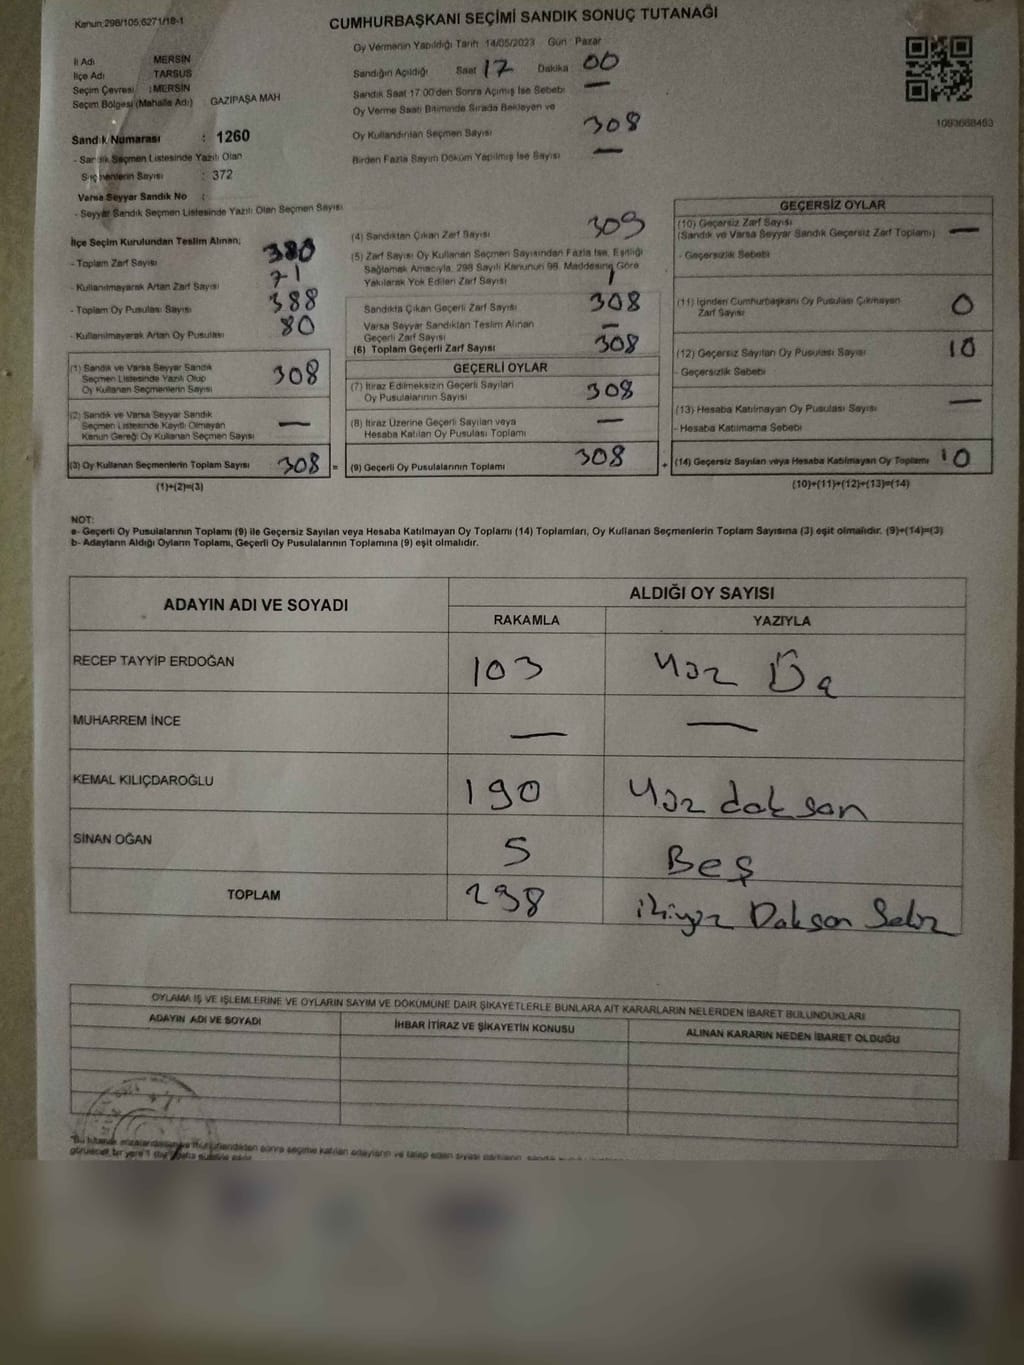 Kanun:298/105;6271/18-1
CUMHURBAŞKANI SEÇİMİ SANDIK SONUÇ TUTANAĞI
İl Adı MERSİN
İlçe Adı TARSUS
Seçim Çevresi : MERSİN
Seçim Bölgesi (Mahalle Adı) GAZİPAŞA MAH
Sandık Numarası : 1260
- Sandık Seçmen Listesinde Yazılı Olan
Seçmenlerin Sayısı : 372
Varsa Seyyar Sandık No :
- Seyyar Sandık Seçmen Listesinde Yazılı Olan Seçmen Sayısı
Oy Vermenin Yapıldığı Tarih 14/05/2023 Gün : Pazar
Sandığın Açıldığı Saat 17 Dakika : 00
Sandık Saat 17.00'den Sonra Açımış İse Sebebi : —
Oy Verme Saati Bitiminde Sırada Bekleyen ve
Oy Kullandırılan Seçmen Sayısı 308
Birden Fazla Sayım Döküm Yapılmış İse Sayısı —
1093668463
İlçe Seçim Kurulundan Teslim Alınan;
- Toplam Zarf Sayısı 380
- Kullanılmayarak Artan Zarf Sayısı 71
- Toplam Oy Pusulası Sayısı 388
- Kullanılmayarak Artan Oy Pusulası 80
(1) Sandık ve Varsa Seyyar Sandık
Seçmen Listesinde Yazılı Olup
Oy Kullanan Seçmenlerin Sayısı 308
(2) Sandık ve Varsa Seyyar Sandık
Seçmen Listesinde Kayıtlı Olmayan
Kanun Gereği Oy Kullanan Seçmen Sayısı —
(3) Oy Kullanan Seçmenlerin Toplam Sayısı 308 =
(1)+(2)=(3)
(4) Sandıktan Çıkan Zarf Sayısı 309
(5) Zarf Sayısı Oy Kullanan Seçmen Sayısından Fazla İse, Eşitliği
Sağlamak Amacıyla, 298 Sayılı Kanunun 98. Maddesine Göre
Yakılarak Yok Edilen Zarf Sayısı 1
Sandıkta Çıkan Geçerli Zarf Sayısı 308
Varsa Seyyar Sandıktan Teslim Alınan
Geçerli Zarf Sayısı —
(6) Toplam Geçerli Zarf Sayısı 308
GEÇERLİ OYLAR
(7) İtiraz Edilmeksizin Geçerli Sayılan
Oy Pusulalarının Sayısı 308
(8) İtiraz Üzerine Geçerli Sayılan veya
Hesaba Katılan Oy Pusulası Toplamı —
(9) Geçerli Oy Pusulalarının Toplamı 308 +
GEÇERSİZ OYLAR
(10) Geçersiz Zarf Sayısı
(Sandık ve Varsa Seyyar Sandık Geçersiz Zarf Toplamı) —
- Geçersizlik Sebebi
(11) İçinden Cumhurbaşkanı Oy Pusulası Çıkmayan
Zarf Sayısı 0
(12) Geçersiz Sayılan Oy Pusulası Sayısı 10
- Geçersizlik Sebebi
(13) Hesaba Katılmayan Oy Pusulası Sayısı —
- Hesaba Katılmama Sebebi
(14) Geçersiz Sayılan veya Hesaba Katılmayan Oy Toplamı 10
(10)+(11)+(12)+(13)=(14)
NOT:
a- Geçerli Oy Pusulalarının Toplamı (9) ile Geçersiz Sayılan veya Hesaba Katılmayan Oy Toplamı (14) Toplamları, Oy Kullanan Seçmenlerin Toplam Sayısına (3) eşit olmalıdır. (9)+(14)=(3)
b- Adayların Aldığı Oyların Toplamı, Geçerli Oy Pusulalarının Toplamına (9) eşit olmalıdır.
ADAYIN ADI VE SOYADI
ALDIĞI OY SAYISI
RAKAMLA YAZIYLA
RECEP TAYYİP ERDOĞAN 103 Yüz Üç
MUHARREM İNCE — —
KEMAL KILIÇDAROĞLU 190 Yüz doksan
SİNAN OĞAN 5 Beş
TOPLAM 298 ikiyüz Doksan Sekiz
OYLAMA İŞ VE İŞLEMLERİNE VE OYLARIN SAYIM VE DÖKÜMÜNE DAİR ŞİKAYETLERLE BUNLARA AİT KARARLARIN NELERDEN İBARET BULUNDUKLARI
ADAYIN ADI VE SOYADI İHBAR İTİRAZ VE ŞİKAYETİN KONUSU ALINAN KARARIN NEDEN İBARET OLDUĞU